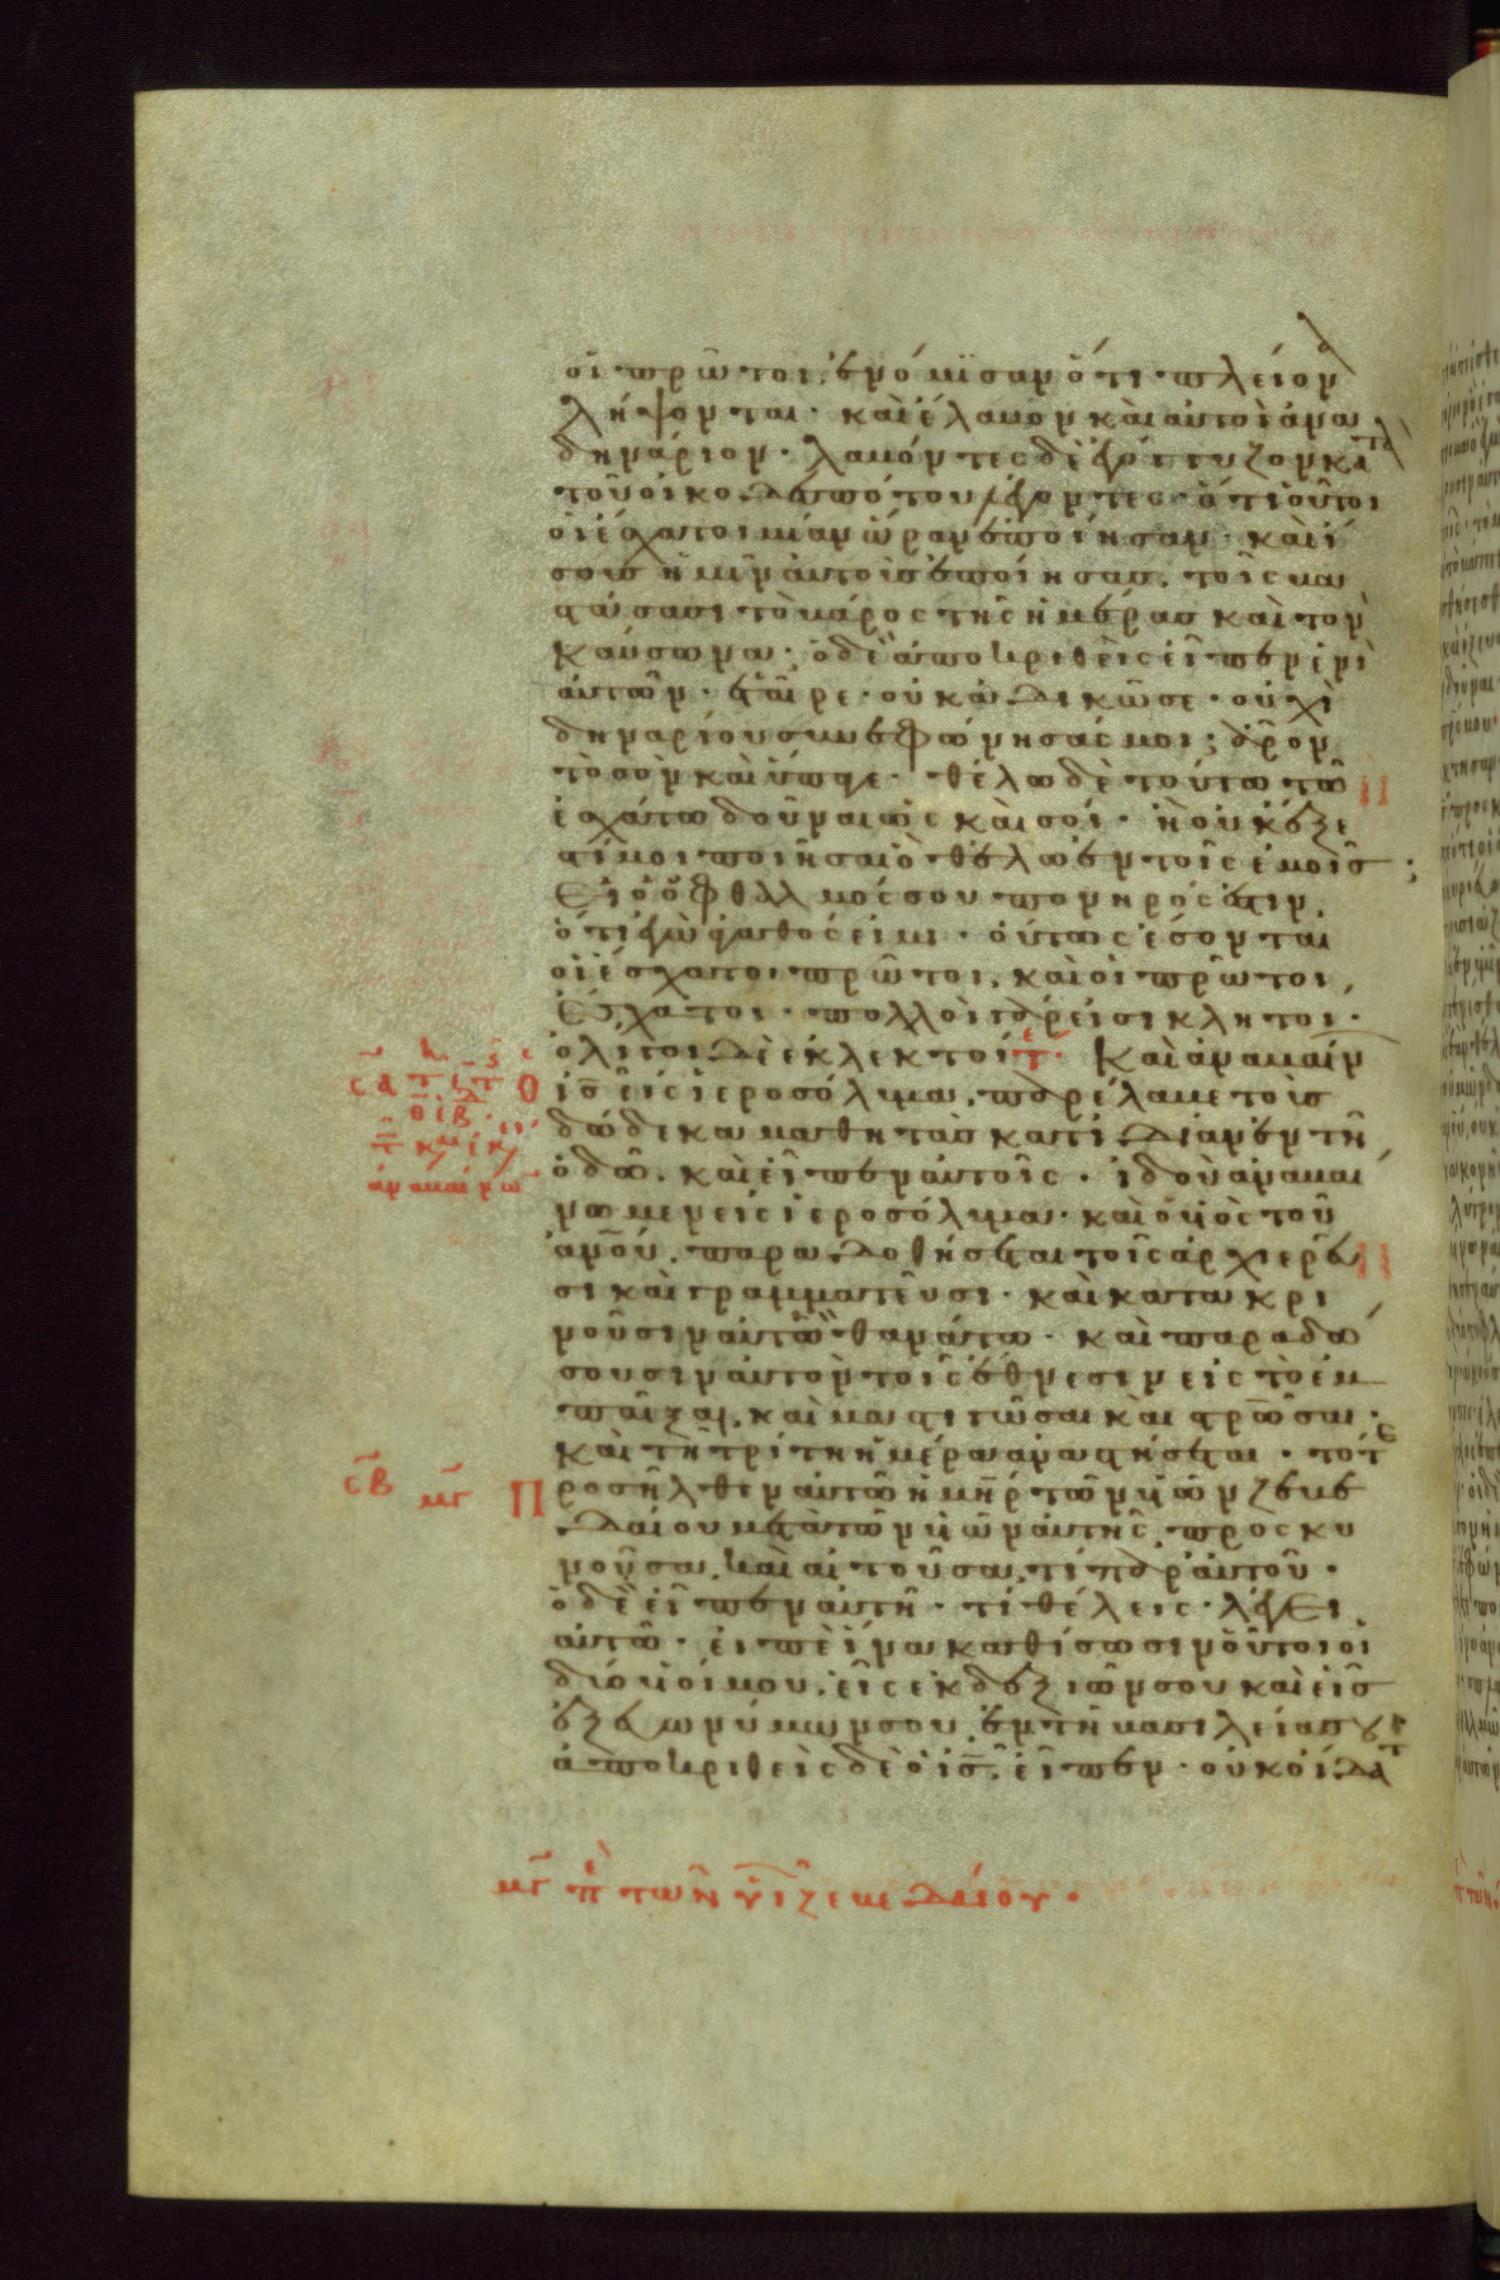 οἱ πρῶτοι, ἐνόμισαν ὅτι πλείονα
λήψονται· καὶ ἔλαβον καὶ αὐτοὶ ἀνα
δηνάριον· λαβόντες δὲ ἐγόγγυζον κατὰ
τοῦ οἰκοδεσπότου λέγοντες· ὅτι οὗτοι
οἱ ἔσχατοι μίαν ὥραν ἐποίησαν· καὶ ἴ
σους ἡμῖν αὐτοὺς ἐποίησας, τοῖς βα
στάσασι τὸ βάρος τῆς ἡμέρας καὶ τὸν
καύσωνα· ὁ δὲ ἀποκριθεὶς εἶπεν ἑνὶ
αὐτῶν· ἑταῖρε· οὐκ ἀδικῶ σε· οὐχὶ
δηναρίου συνεφώνησάς μοι; ἆρον
τὸ σὸν καὶ ὕπαγε· θέλω δὲ τούτω τῶ
ἐσχάτω δοῦναι ὡς καὶ σοί· ἢ οὐκ ἔξε
στί μοι ποιῆσαι ὃ θέλω ἐν τοῖς ἐμοῖς;
Εἰ ὁ ὀφθαλμός σου πονηρός ἐστιν,
ὅτι ἐγὼ ἀγαθός εἰμι· οὕτως ἔσονται
οἱ ἔσχατοι πρῶτοι, καὶ οἱ πρῶτοι,
Ἔσχατοι· πολλοὶ γάρ εἰσι κλητοι·
ὀλίγοι δὲ ἐκλεκτοί τε· Καὶ ἀναβαίν
σα
Ο ἰς εἰς ἱεροσόλυμα, παρέλαβε τοὺς
δώδεκα μαθητὰς κατ' ἰδίαν ἐν τῆ
ὁδῶ. καὶ εἶπεν αὐτοῖς· ἰδοὺ ἀναβαί
ἀναβαίνω
νωμεν εἰς ἱεροσόλυμα· καὶ ὁ υἱὸς τοῦ
ανου. παραδοθήσεται τοῖς ἀρχιερεῦ
σι καὶ γραμματεῦσι· καὶ κατακρι
νοῦσιν αὐτὸν θανάτω· καὶ παραδώ
σουσιν αὐτὸν τοῖς ἔθνεσιν εἰς τὸ ἐμ
παῖξαι, καὶ μαστιγῶσαι καὶ στρῶσαι·
Καὶ τῆ τρίτη ἡμέρα ἀναστήσεται· τότε
σβ μγ Προσῆλθεν αὐτῶ ἡ μηρ τῶν υἱῶν ζεβε
δαίου μετὰ τῶν υἱῶν αὐτῆς, προσκυ
νοῦσα, καὶ αἰτοῦσα, τί παρ' αὐτοῦ·
ὁ δὲ εἶπεν αὐτῆ· τί θέλεις· λέγει
αὐτῶ· εἰπὲ ἵνα καθίσωσιν οὗτοι οἱ
δύο υἱοί μου. εἷς ἐκ δεξιῶν σου καὶ εἷς
ἐξ εὐωνύμων σου, ἐν τῆ βασιλεία σου
ἀποκριθεὶς δὲ ὁ ις, εἶπεν· οὐκ οἴδατε
μγ πε τῶν υι ζεβεδαίου·